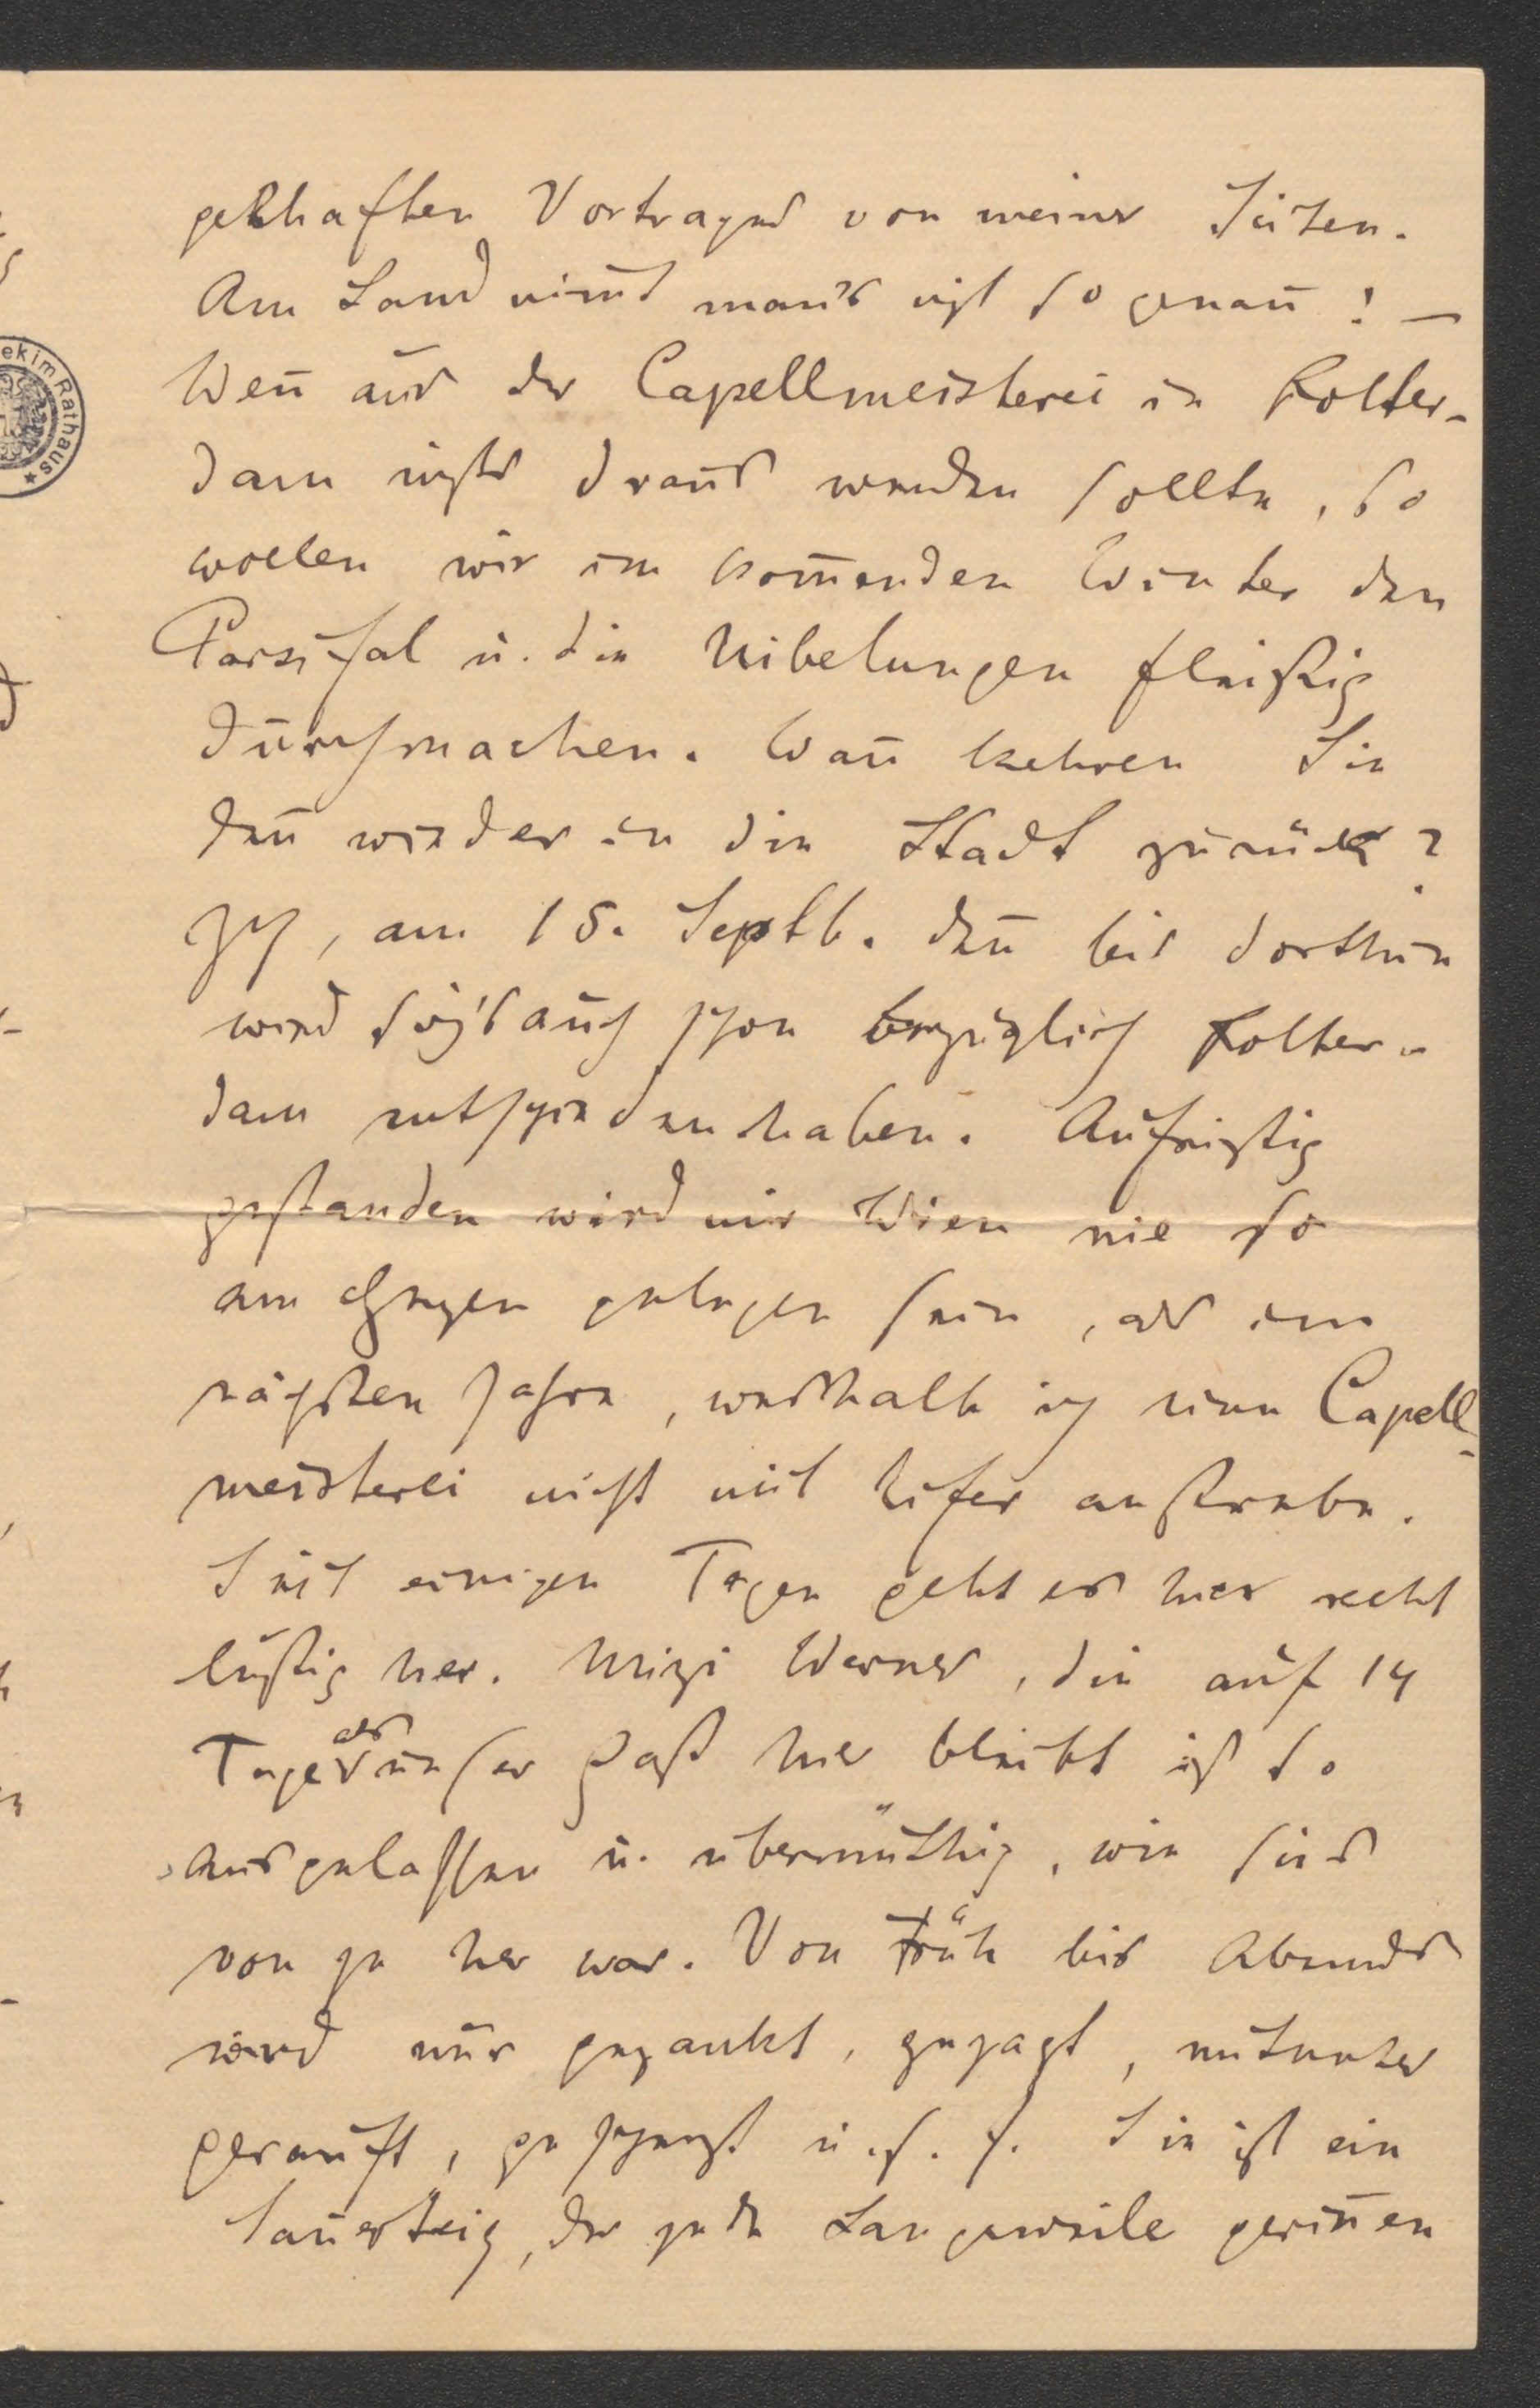 gekhaften Vortragens von meiner Seiten.
Am Land nim̅t man's nicht so genau! —
Wen̅ aus der Capellmeisterei in Rotter-
dam nichts draus werden sollte, so
wollen wir im kom̅enden Winter den
Parsifal u. die Nibelungen fleißig
durchmachen. Wan̅ kehren Sie
den̅ wieder in die Stadt zurück?
Ich, am 15. Septb. den̅ bis dorthin
wird sich's auch schon bezüglich Rotter-
dam entschieden haben. Aufrichtig
gestanden wird mir Wien nie so
am Herzen gelegen sein, als im
nächsten Jahre, weshalb ich eine Capell-
meisterei nicht mit Eifer anstrebe.
Seit einigen Tagen geht es hier recht
lustig her. Mizi Werner, die auf 14
Tage als unser Gast hier bleibt ist so
ausgelassen u. übermüthig, wie sie's
von je her war. Von Früh bis Abends
wird nur gezankt, gejagt, mitunter
gerauft, gescherzt u.s.f. Sie ist ein
Sauerteig, der jede Langeweile gerin̅en
ekimRathaus